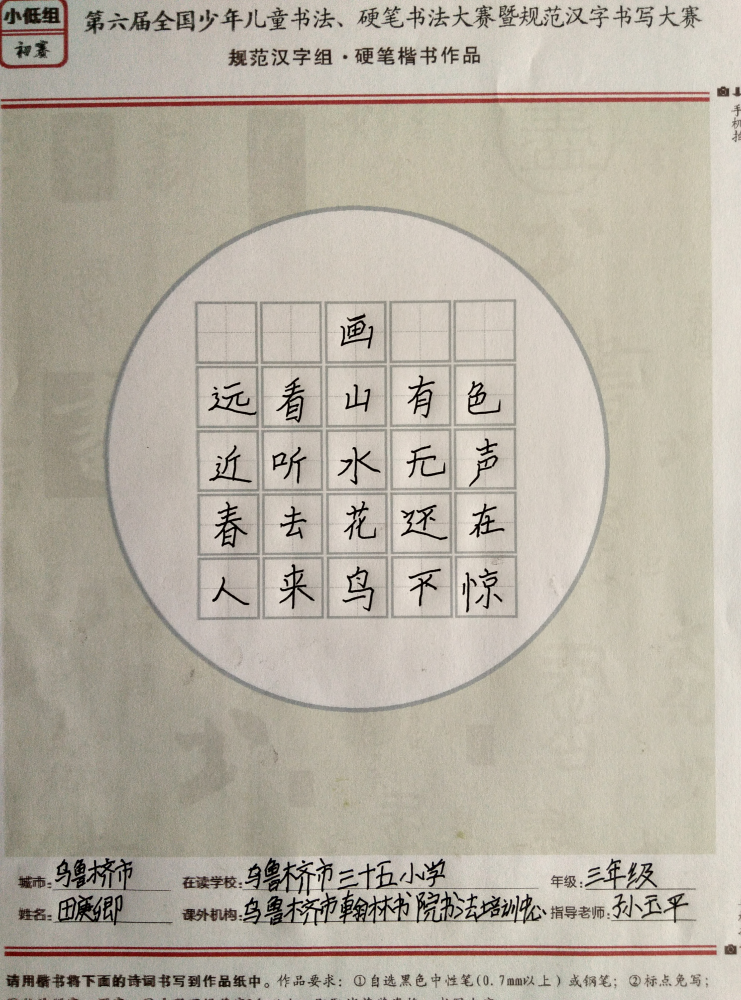 小低组
初赛
第六届全国少年儿童书法、硬笔书法大赛暨规范汉字书写大赛
规范汉字组·硬笔楷书作品
手机拍
画
远看山有色
近听水无声
春去花还在
人来鸟不惊
城市：乌鲁木齐市 在读学校：乌鲁木齐市三十五小学 年级：三年级
姓名：田庚卿 课外机构：乌鲁木齐市翰林书院书法培训中心 指导老师：孙玉平
请用楷书将下面的诗词书写到作品纸中。作品要求：①自选黑色中性笔(0.7mm以上)或钢笔；②标点免写；